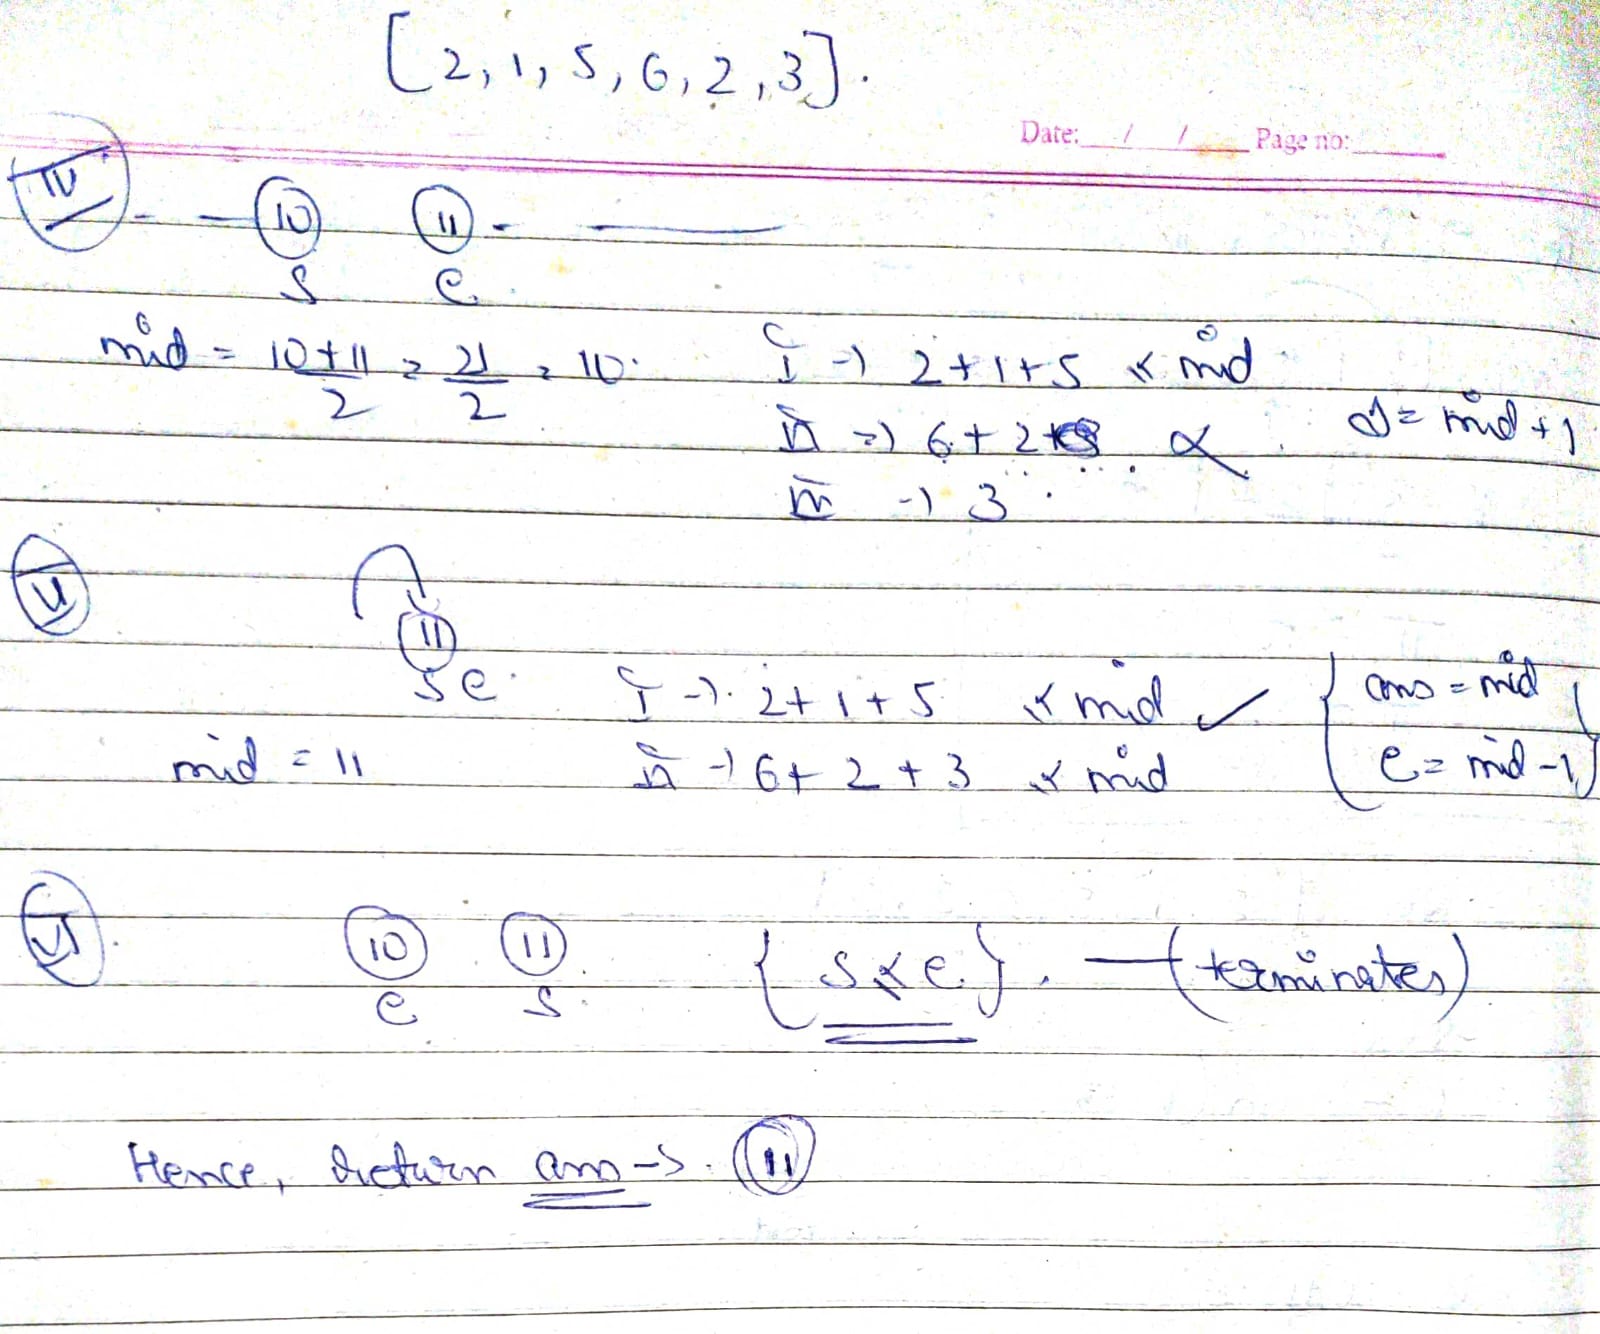 [2, 1, 5, 6, 2, 3].
Date: / / Page no:
IV
10 11
s e
mid = 10+11/2 = 21/2 = 10.
I → 2+1+5 < mid
II → 6+2+3 × s = mid+1
III → 3
V
11
s e
I → 2+1+5 < mid ✓ { ans = mid
mid = 11 II → 6+2+3 < mid e = mid-1 }
VI
10 11 { s < e }. — (terminates)
e s
Hence, return ans → 11